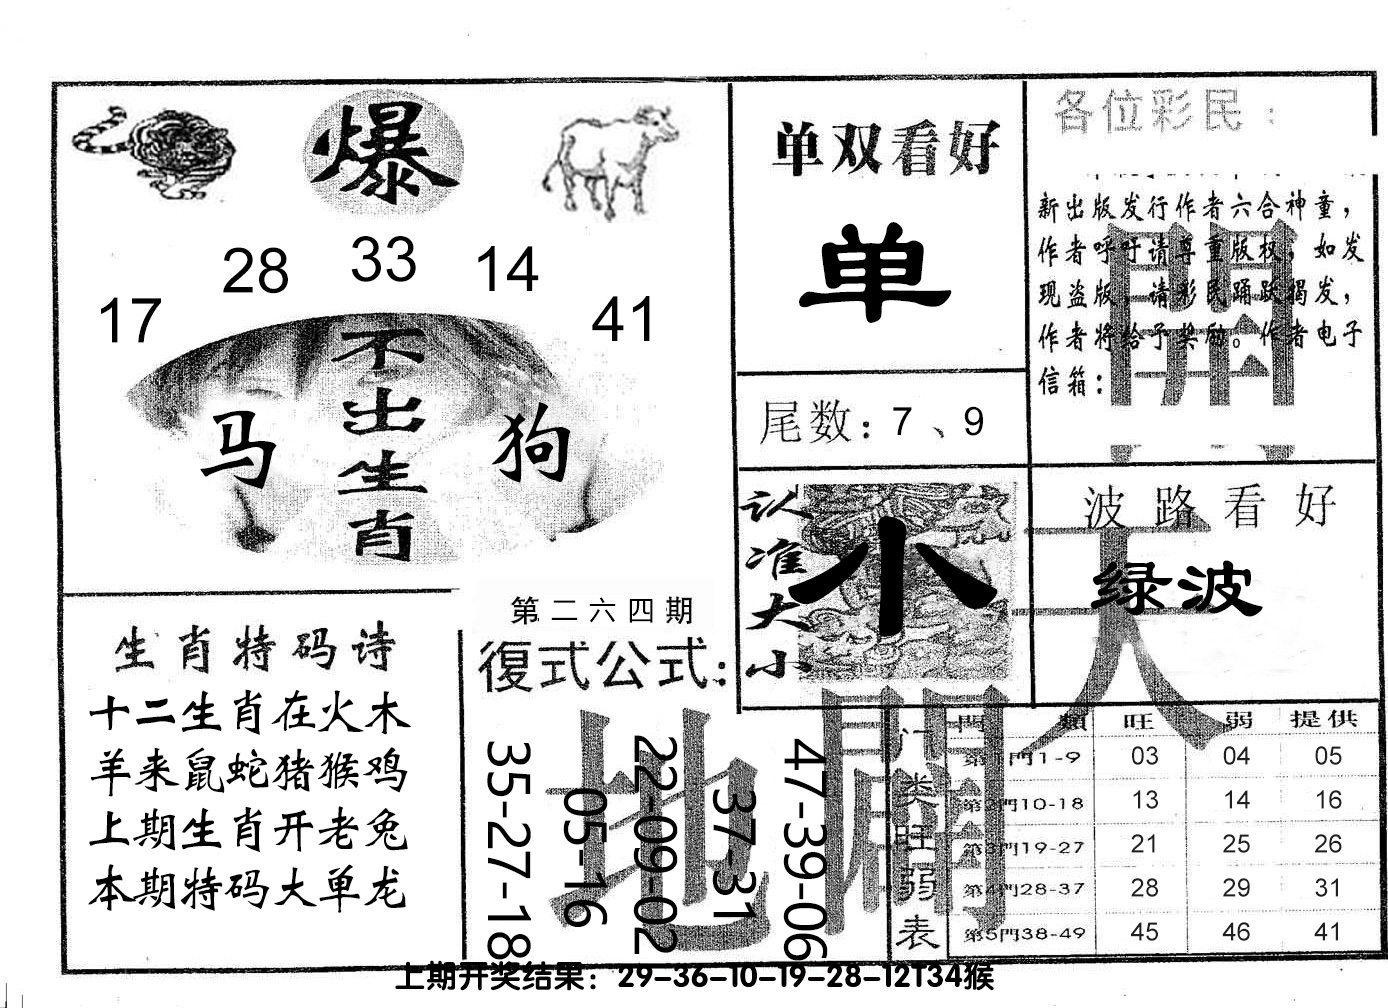 爆
17 28 33 14 41
不出生肖
马 狗
单双看好
单
尾数：7、9
各位彩民：
新出版发行作者六合神童，
作者呼吁请尊重版权，如发
现盗版，请彩民踊跃揭发，
作者将给予奖励。作者电子
信箱：
開
认准大小
小
波路看好
绿波
天
生肖特码诗
十二生肖在火木
羊来鼠蛇猪猴鸡
上期生肖开老兔
本期特码大单龙
第二六四期
復式公式：
35-27-18
05-16
22-09-02
37-31
47-39-06
地
門类旺弱表
門類 旺 弱 提供
第1門1-9 03 04 05
第2門10-18 13 14 16
第3門19-27 21 25 26
第4門28-37 28 29 31
第5門38-49 45 46 41
上期开奖结果：29-36-10-19-28-12T34猴